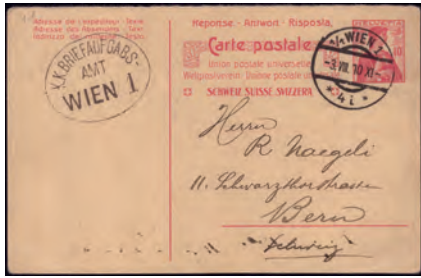 Adresse de l'expéditeur
Adresse des Absenders
K.K. BRIEFAUFGABS-
AMT
WIEN 1
Réponse. - Antwort - Risposta.
Carte postale
Union postale universelle
Weltpostverein.
HELVETIA
10
SCHWEIZ SUISSE SVIZZERA
1/1 WIEN 1
-3.VIII.10 XI-
* 4l *
Herrn
R Naegeli
11. Schwarzthorstrasse
Bern
Schweiz